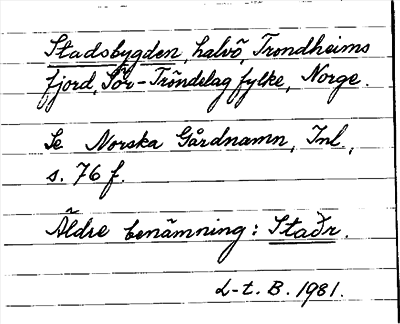 Stadsbygden, halvö, Trondheims
fjord, Sör-Tröndelag fylke, Norge.
Se Norska Gårdnamn, Inl.,
s. 76 f.
Äldre benämning: Staðr.
L-t. B. 1981.